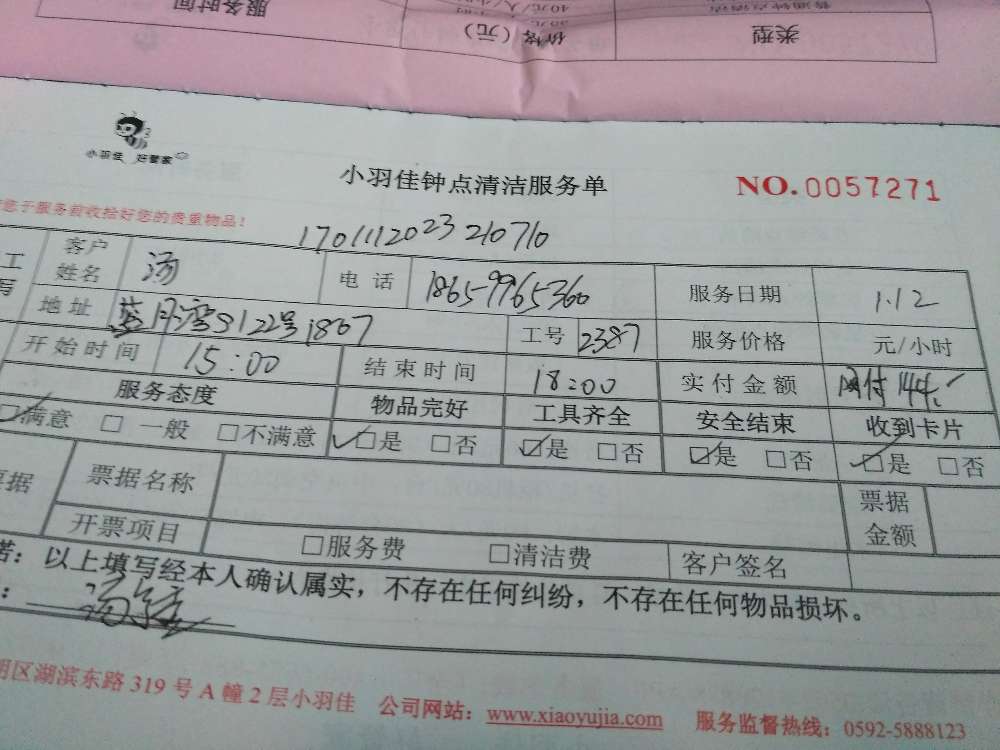 类型 价格（元） 服务时间
小羽佳 好管家
小羽佳钟点清洁服务单 NO.0057271
您于服务前收拾好您的贵重物品！
1701112023210710
客户姓名 汤 电话 18659965360 服务日期 1.12
地址 蓝月湾S122号1807 工号 2387 服务价格 元/小时
开始时间 15:00 结束时间 18:00 实付金额 网付144
服务态度 物品完好 工具齐全 安全结束 收到卡片
☑满意 □一般 □不满意 ☑是 □否 ☑是 □否 ☑是 □否 ☑是 □否
票据名称 票据金额
开票项目 □服务费 □清洁费 客户签名
诺：以上填写经本人确认属实，不存在任何纠纷，不存在任何物品损坏。
明区湖滨东路319号A幢2层小羽佳 公司网站：www.xiaoyujia.com 服务监督热线：0592-5888123